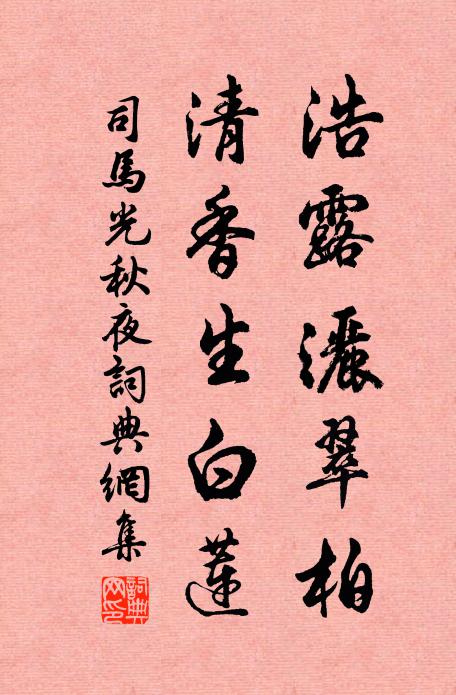 浩露灑翠柏
清香生白蓮
司馬光秋夜詞典網集
詞典
网印